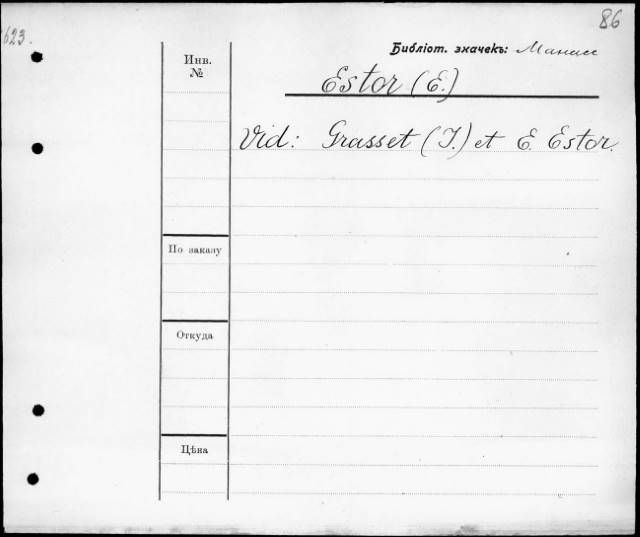 86
623.
Библіот. значекъ:
Инв.
№
Estor (E.)
Vid: Grasset (J.) et E. Estor.
По заказу
Откуда
Цѣна